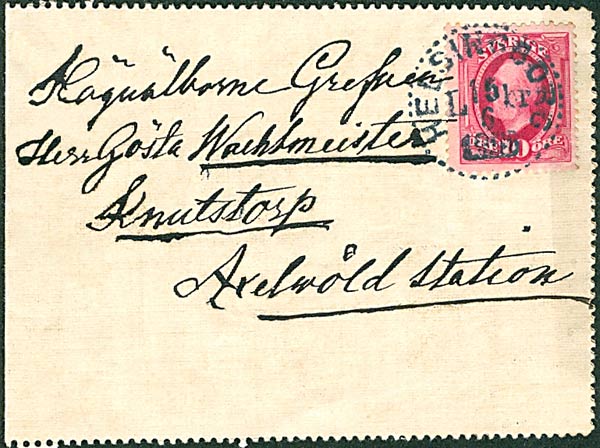 Högvälborne Grefven
Herr Gösta Wachtmeister
Knutstorp
Axelwöld station
SVERIGE
HELSINGBORG